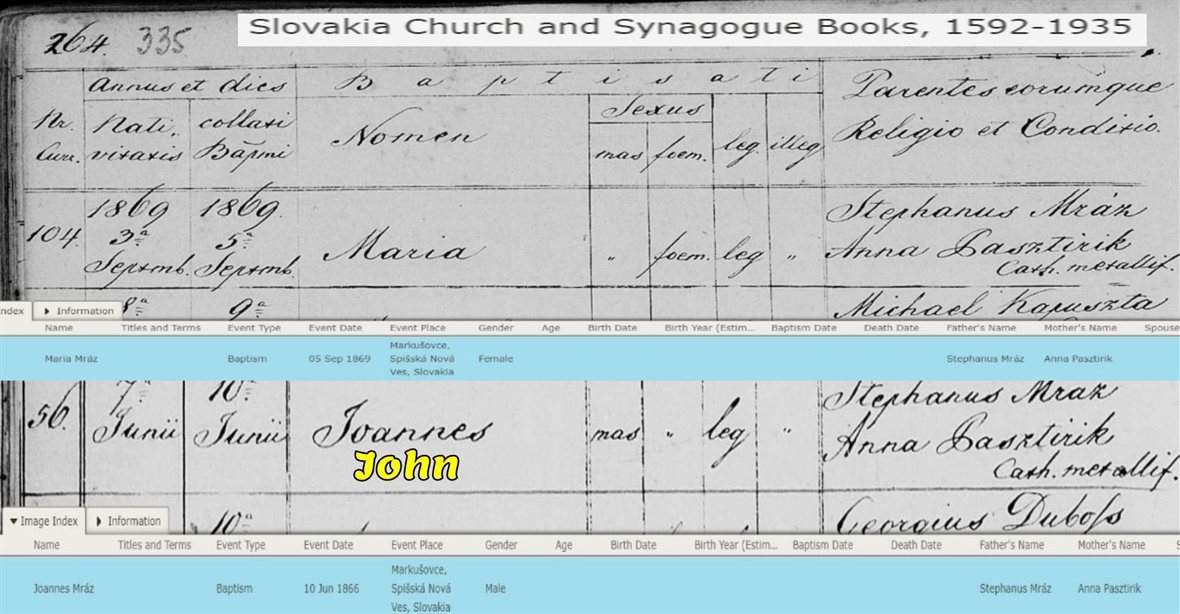 Slovakia Church and Synagogue Books, 1592-1935
264. 335
Annus et dies Baptisati Parentes eorumque Religio et Conditio.
Nr. Curr. Nati, vitatis collati Bapmi Nomen Sexus mas foem. leg. illeg
104. 1869 3ª Septmb. 1869. 5ª Septmb. Maria " foem. leg " Stephanus Mráz
Anna Pasztirik
Cath. metallif.
8ª 9ª Michael Kapuszta
Index Information
Name Titles and Terms Event Type Event Date Event Place Gender Age Birth Date Birth Year (Estim... Baptism Date Death Date Father's Name Mother's Name Spouse
Maria Mráz Baptism 05 Sep 1869 Markušovce, Spišská Nová Ves, Slovakia Female Stephanus Mráz Anna Pasztirik
56. 7ª Junii 10ª Junii Joannes mas " leg " Stephanus Mraz
Anna Pasztirik
Cath. metallif.
John
10ª Georgius
Image Index Information
Name Titles and Terms Event Type Event Date Event Place Gender Age Birth Date Birth Year (Estim... Baptism Date Death Date Father's Name Mother's Name S
Joannes Mráz Baptism 10 Jun 1866 Markušovce, Spišská Nová Ves, Slovakia Male Stephanus Mráz Anna Pasztirik